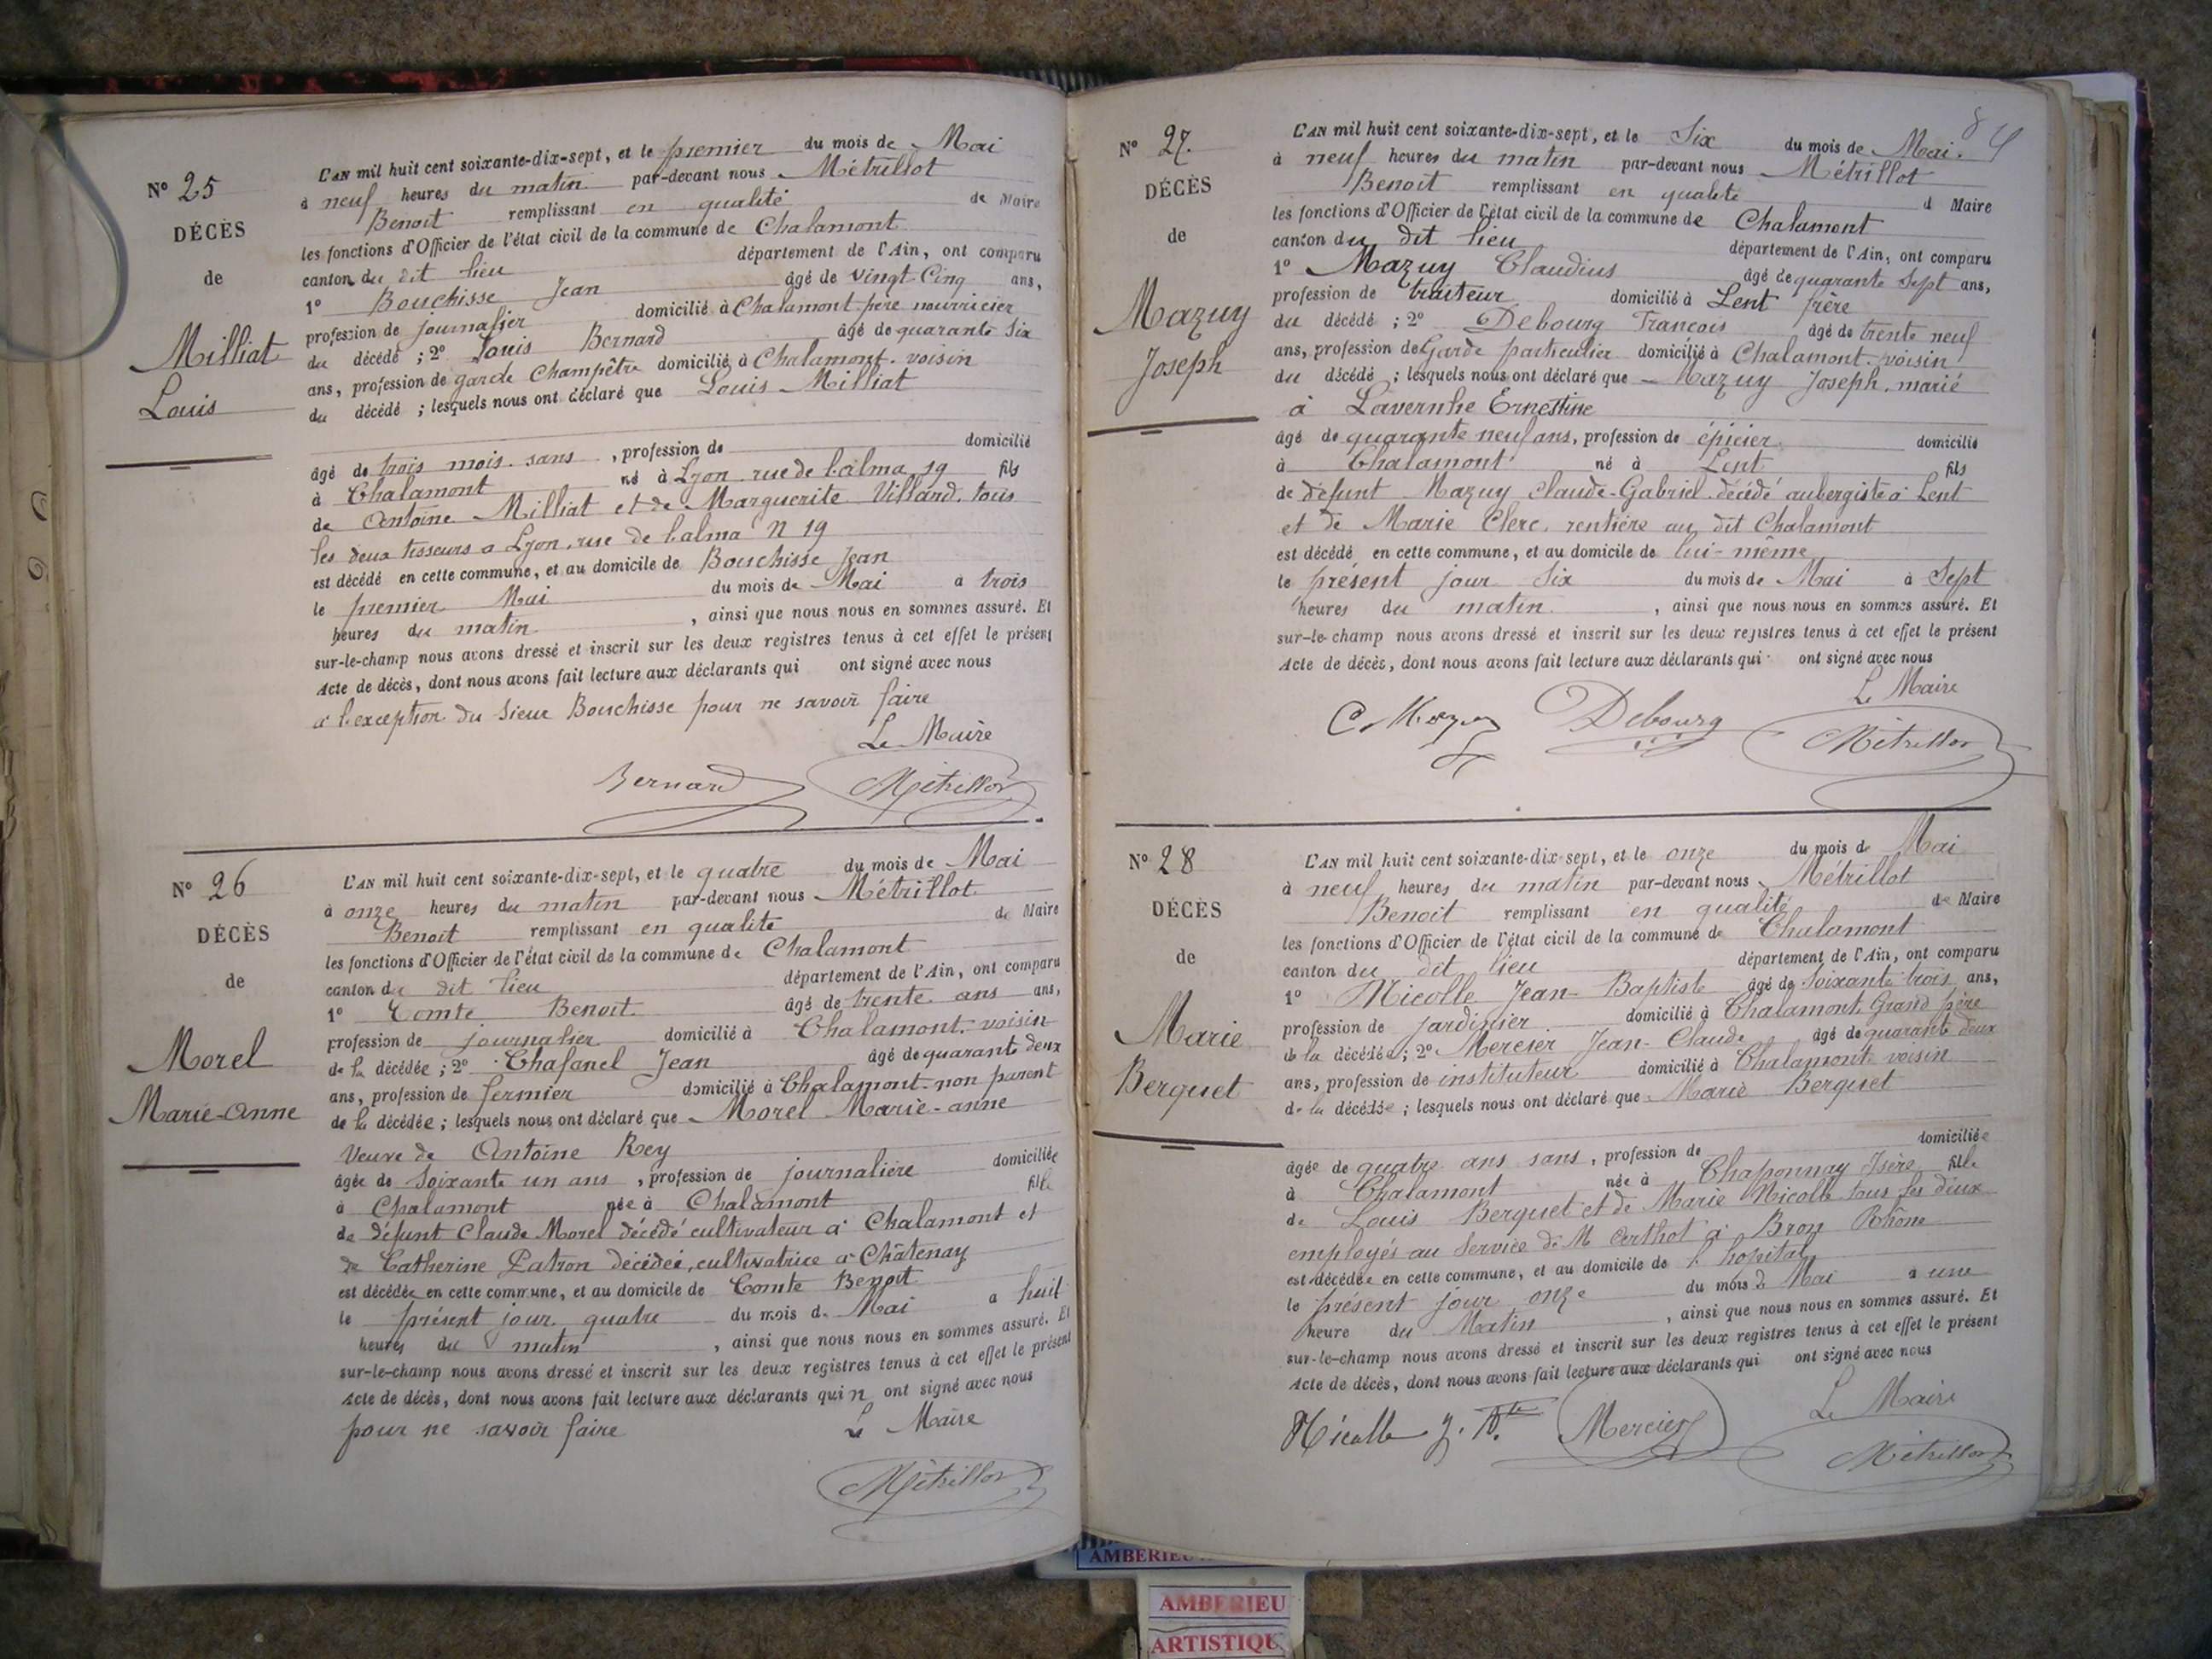 N° 25
DÉCÈS
de
Milliat
Louis
L'AN mil huit cent soixante-dix-sept, et le premier du mois de Mai
à neuf heures du matin par-devant nous Métrillot
Benoit remplissant en qualité de Maire
les fonctions d'Officier de l'état civil de la commune de Chalamont
canton du dit lieu département de l'Ain, ont comparu
1° Bouchisse Jean âgé de vingt-Cinq ans,
profession de journalier domicilié à Chalamont père nourricier
du décédé ; 2° Louis Bernard âgé de quarante six
ans, profession de garde Champêtre domicilié à Chalamont. voisin
du décédé ; lesquels nous ont déclaré que Louis Milliat
âgé de trois mois. sans , profession de domicilié
à Chalamont né à Lyon, rue de l'alma, 19 fils
de Antoine Milliat et de Marguerite Villand. tous
les deux tisseurs a Lyon, rue de l'alma N 19
est décédé en cette commune, et au domicile de Bouchisse Jean
le premier Mai du mois de Mai à trois
heures du matin , ainsi que nous nous en sommes assuré. Et
sur-le-champ nous avons dressé et inscrit sur les deux registres tenus à cet effet le présent
Acte de décès, dont nous avons fait lecture aux déclarants qui ont signé avec nous
a l'exception du Sieur Bouchisse pour ne savoir faire
Le Maire
Bernard Métrillot
N° 26
DÉCÈS
de
Morel
Marie-Anne
L'AN mil huit cent soixante-dix-sept, et le quatre du mois de Mai
à onze heures du matin par-devant nous Métrillot
Benoit remplissant en qualité de Maire
les fonctions d'Officier de l'état civil de la commune de Chalamont
canton du dit lieu département de l'Ain, ont comparu
1° Comte Benoit âgé de trente ans ans,
profession de journalier domicilié à Chalamont. voisin
de la décédée ; 2° Chafanel Jean âgé de quarante deux
ans, profession de fermier domicilié à Chalamont non parent
de la décédée ; lesquels nous ont déclaré que Morel Marie-anne
Veuve de Antoine Rey
âgée de Soixante un ans , profession de journalière domiciliée
à Chalamont née à Chalamont fille
de défunt Claude Morel décédé cultivateur à Chalamont et
de Catherine Patron décédée, cultivatrice à Châtenay
est décédée en cette commune, et au domicile de Comte Benoit
le présent jour quatre du mois de Mai a huit
heures du matin , ainsi que nous nous en sommes assuré. Et
sur-le-champ nous avons dressé et inscrit sur les deux registres tenus à cet effet le présent
Acte de décès, dont nous avons fait lecture aux déclarants qui n ont signé avec nous
pour ne savoir faire Le Maire
Métrillot
N° 27.
DÉCÈS
de
Mazuy
Joseph
L'AN mil huit cent soixante-dix-sept, et le Six du mois de Mai.
à neuf heures du matin par-devant nous Métrillot
Benoit remplissant en qualité d Maire
les fonctions d'Officier de l'état civil de la commune de Chalamont
canton du dit lieu département de l'Ain, ont comparu
1° Mazuy Claudius âgé de quarante Sept ans,
profession de traiteur domicilié à Lent frère
du décédé ; 2° Debourg François âgé de trente neuf
ans, profession de Garde particulier domicilié à Chalamont. voisin
du décédé ; lesquels nous ont déclaré que Mazuy Joseph. marié
à Lavernhe Ernestine
âgé de quarante neuf ans, profession de épicier domicilié
à Chalamont né à Lent fils
de défunt Mazuy Claude-Gabriel. décédé aubergiste à Lent
et de Marie Clerc. rentière au dit Chalamont
est décédé en cette commune, et au domicile de lui-même
le présent jour six du mois de Mai à Sept
heures du matin , ainsi que nous nous en sommes assuré. Et
sur-le-champ nous avons dressé et inscrit sur les deux registres tenus à cet effet le présent
Acte de décès, dont nous avons fait lecture aux déclarants qui ont signé avec nous
Le Maire
C Mazuy Debourg Métrillot
N° 28
DÉCÈS
de
Marie
Berguet
L'AN mil huit cent soixante-dix-sept, et le onze du mois de Mai
à neuf heures du matin par-devant nous Métrillot
Benoit remplissant en qualité de Maire
les fonctions d'Officier de l'état civil de la commune de Chalamont
canton du dit lieu département de l'Ain, ont comparu
1° Nicolle Jean-Baptiste âgé de Soixante trois ans,
profession de jardinier domicilié à Chalamont Grand père
de la décédée ; 2° Mercier Jean-Claude âgé de quarante deux
ans, profession de instituteur domicilié à Chalamont voisin
de la décédée ; lesquels nous ont déclaré que Marie Berguet
âgée de quatre ans sans , profession de domiciliée
à Chalamont née à Chaponnay Isère fille
de Louis Berguet et de Marie Nicolle tous les deux
employés au Service de M à Bron Rhône
est décédée en cette commune, et au domicile de l'hopital
le présent jour onze du mois de Mai à une
heure du Matin , ainsi que nous nous en sommes assuré. Et
sur-le-champ nous avons dressé et inscrit sur les deux registres tenus à cet effet le présent
Acte de décès, dont nous avons fait lecture aux déclarants qui ont signé avec nous
Le Maire
Nicolle J. Bte Mercier Métrillot
AMBERIEU
AMBERIEU
ARTISTIQU